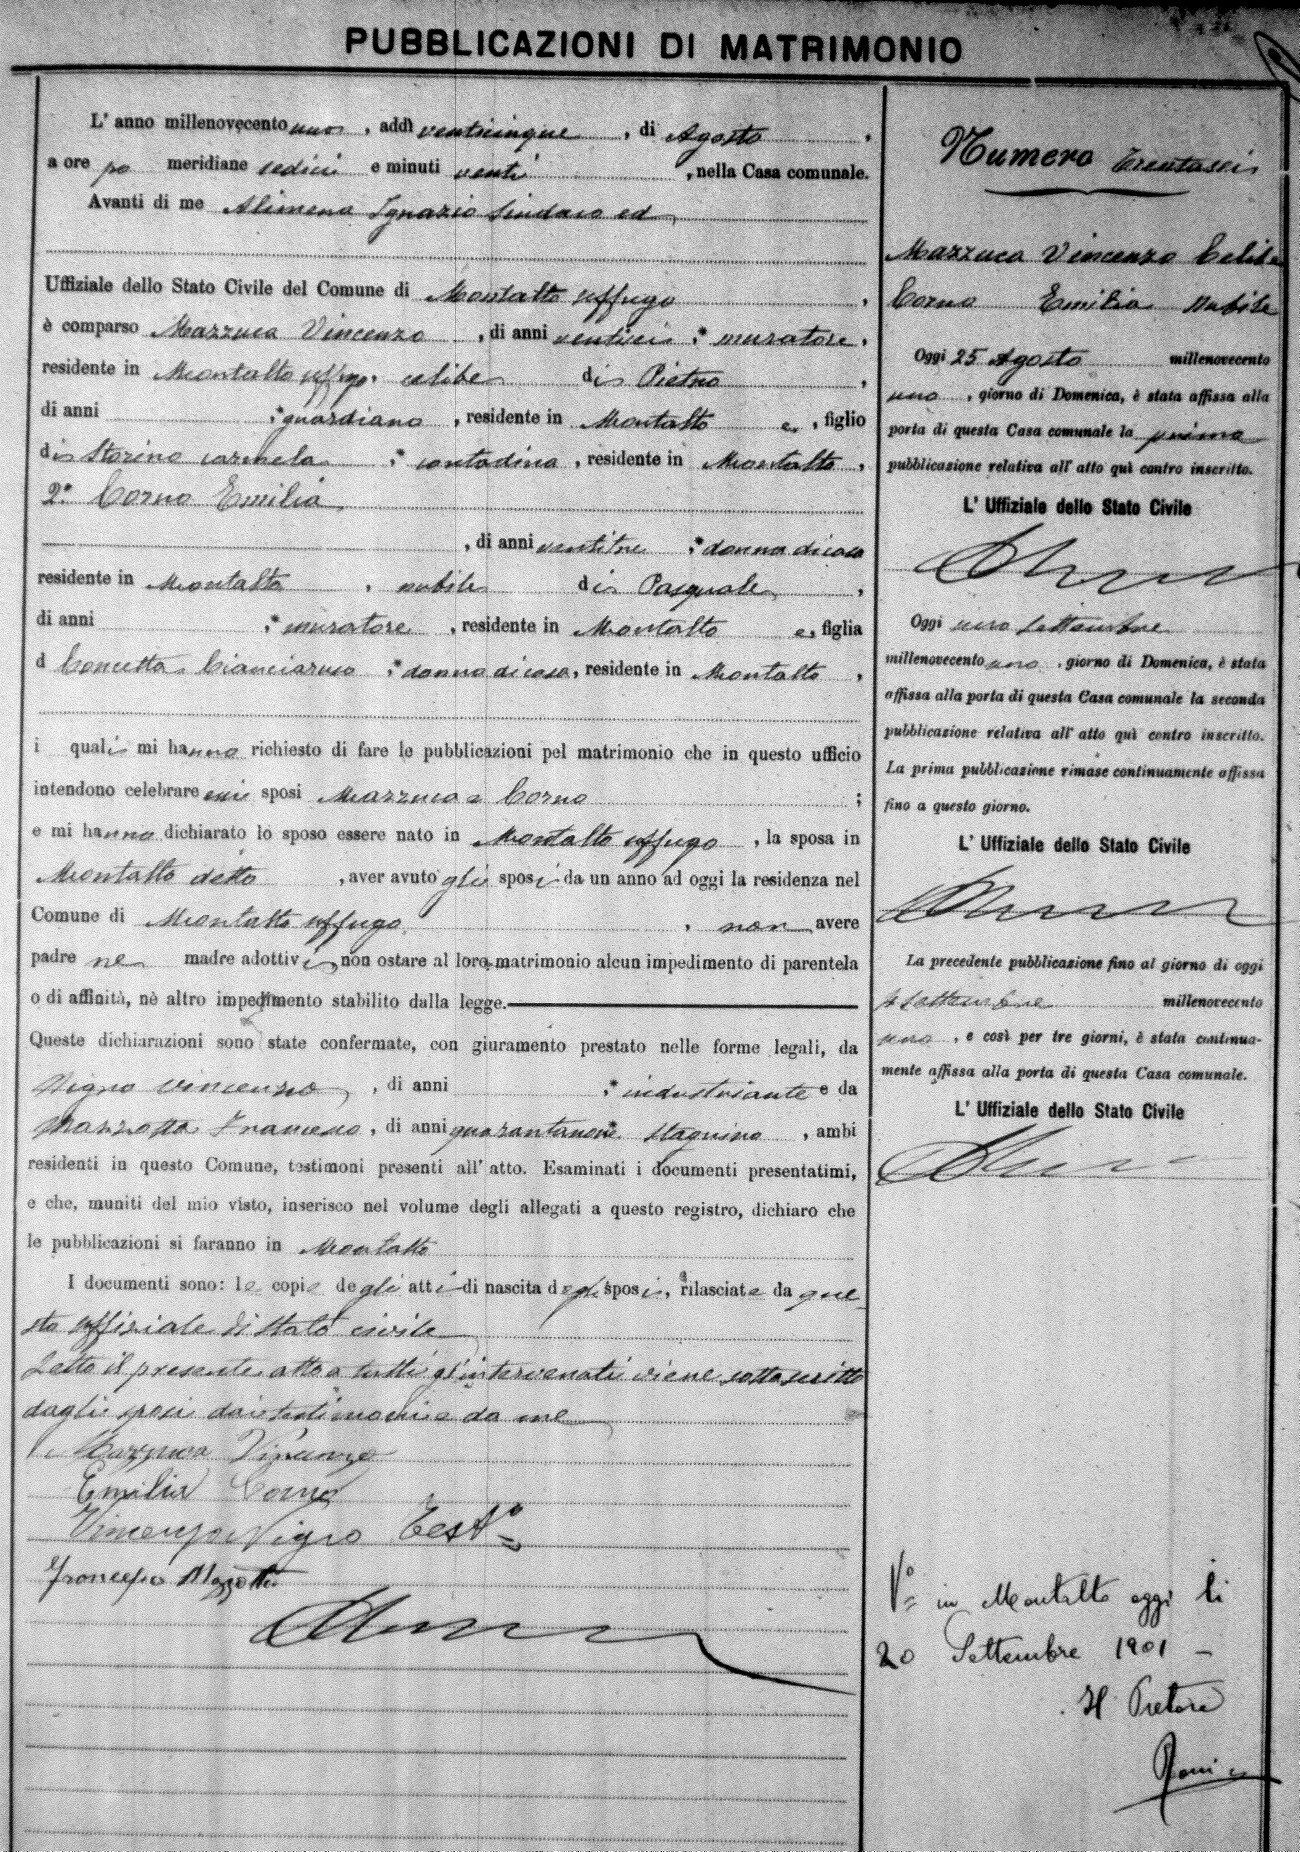 PUBBLICAZIONI DI MATRIMONIO
L' anno millenovecento uno, addì venticinque, di Agosto,
a ore po meridiane sedici e minuti venti, nella Casa comunale.
Avanti di me Alimena Ignazio Sindaco ed
Uffiziale dello Stato Civile del Comune di Montalto Uffugo,
è comparso Mazzuca Vincenzo, di anni ventisei, muratore,
residente in Montalto Uffugo, celibe di Pietro,
di anni , guardiano, residente in Montalto e, figlio
di Storino Carmela, contadina, residente in Montalto,
2° Corno Emilia
, di anni ventitre, donna di casa
residente in Montalto, nubile di Pasquale,
di anni , muratore, residente in Montalto e, figlia
d Concetta Cianciaruso, donna di casa, residente in Montalto,
i quali mi hanno richiesto di fare le pubblicazioni pel matrimonio che in questo ufficio
intendono celebrare essi sposi Mazzuca e Corno ;
e mi hanno dichiarato lo sposo essere nato in Montalto Uffugo, la sposa in
Montalto detto, aver avuto gli sposi da un anno ad oggi la residenza nel
Comune di Montalto Uffugo, non avere
padre ne madre adottivi, non ostare al loro matrimonio alcun impedimento di parentela
o di affinità, nè altro impedimento stabilito dalla legge.
Queste dichiarazioni sono state confermate, con giuramento prestato nelle forme legali, da
Nigro Vincenzo, di anni , industriante e da
Mazzotta Francesco, di anni quarantanove, stagnino, ambi
residenti in questo Comune, testimoni presenti all' atto. Esaminati i documenti presentatimi,
e che, muniti del mio visto, inserisco nel volume degli allegati a questo registro, dichiaro che
le pubblicazioni si faranno in Montalto
I documenti sono: le copie degli atti di nascita degli sposi, rilasciate da que
sto uffiziale di stato civile
Letto il presente atto a tutti gl'intervenuti viene sottoscritto
dagli sposi dai testimoni e da me
Mazzuca Vincenzo
Emilia Corno
Vincenzo Nigro Test°
Francesco Mazzotta
Numero trentasei
Mazzuca Vincenzo celibe
Corno Emilia nubile
Oggi 25 Agosto millenovecento
uno, giorno di Domenica, è stata affissa alla
porta di questa Casa comunale la prima
pubblicazione relativa all' atto quì contro inscritto.
L' Uffiziale dello Stato Civile
Oggi uno Settembre
millenovecento uno, giorno di Domenica, è stata
affissa alla porta di questa Casa comunale la seconda
pubblicazione relativa all' atto quì contro inscritto.
La prima pubblicazione rimase continuamente affissa
fino a questo giorno.
L' Uffiziale dello Stato Civile
La precedente pubblicazione fino al giorno di oggi
4 Settembre millenovecento
uno, e così per tre giorni, è stata continua-
mente affissa alla porta di questa Casa comunale.
L' Uffiziale dello Stato Civile
V° in Montalto oggi li
20 Settembre 1901 –
Il Pretore